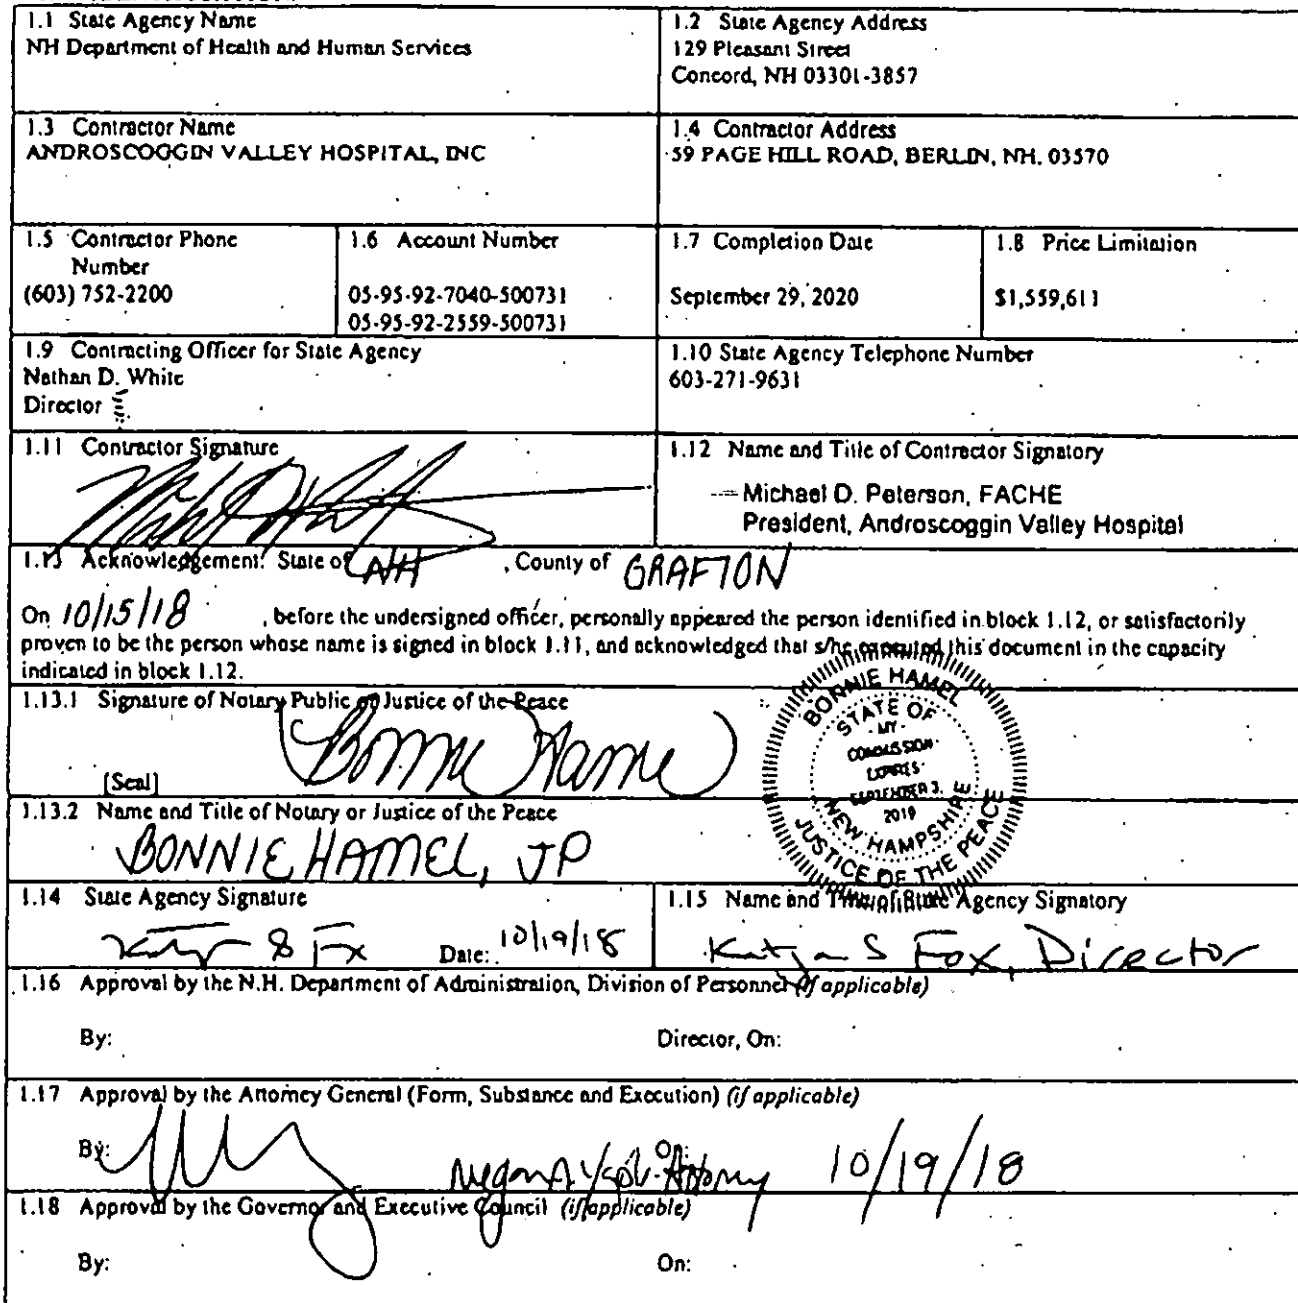 1.1 State Agency Name
NH Department of Health and Human Services
1.2 State Agency Address
129 Pleasant Street
Concord, NH 03301-3857
1.3 Contractor Name
ANDROSCOGGIN VALLEY HOSPITAL, INC
1.4 Contractor Address
59 PAGE HILL ROAD, BERLIN, NH. 03570
1.5 Contractor Phone
Number
(603) 752-2200
1.6 Account Number
05-95-92-7040-500731
05-95-92-2559-500731
1.7 Completion Date
September 29, 2020
1.8 Price Limitation
$1,559,611
1.9 Contracting Officer for State Agency
Nathan D. White
Director
1.10 State Agency Telephone Number
603-271-9631
1.11 Contractor Signature
1.12 Name and Title of Contractor Signatory
Michael D. Peterson, FACHE
President, Androscoggin Valley Hospital
1.13 Acknowledgement: State of NH , County of GRAFTON
On 10/15/18 , before the undersigned officer, personally appeared the person identified in block 1.12, or satisfactorily
proven to be the person whose name is signed in block 1.11, and acknowledged that s/he executed this document in the capacity
indicated in block 1.12.
1.13.1 Signature of Notary Public or Justice of the Peace
Bonnie Hamel
[Seal]
BONNIE HAMEL
STATE OF
MY
COMMISSION
EXPIRES
SEPTEMBER 3,
2019
NEW HAMPSHIRE
JUSTICE OF THE PEACE
1.13.2 Name and Title of Notary or Justice of the Peace
BONNIE HAMEL, JP
1.14 State Agency Signature
Date: 10/19/18
1.15 Name and Title of State Agency Signatory
Katja S Fox, Director
1.16 Approval by the N.H. Department of Administration, Division of Personnel (if applicable)
By: Director, On:
1.17 Approval by the Attorney General (Form, Substance and Execution) (if applicable)
By: On: 10/19/18
1.18 Approval by the Governor and Executive Council (if applicable)
By: On: